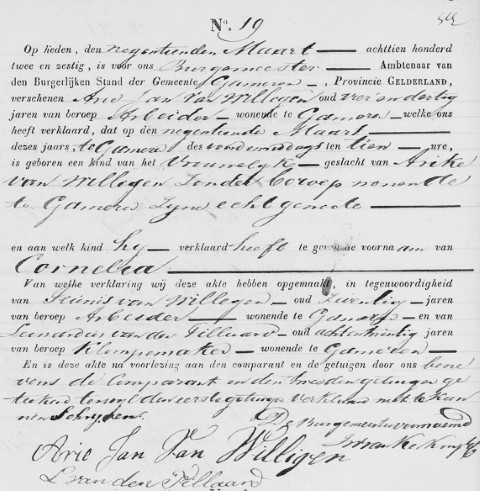 No. 19
Op heden, den negentienden Maart achttien honderd
twee en zestig, is voor ons Burgemeester Ambtenaar van
den Burgerlijken Stand der Gemeente Gameren, Provincie GELDERLAND,
verschenen Arie Jan van Willegen oud drie en dertig
jaren van beroep Arbeider wonende te Gameren welke ons
heeft verklaard, dat op den negentiende Maart
dezes jaars, te Gameren des voormiddags ten tien ure,
is geboren een kind van het Vrouwelijk geslacht van
van Willegen zonder beroep wonende
te Gameren zyne echtgenoote
en aan welk kind hy verklaard heeft te geven de voornaam van
Cornelia
Van welke verklaring wij deze akte hebben opgemaakt, in tegenwoordigheid
van Teunis van Willegen oud twintig jaren
van beroep Arbeider wonende te Gameren en van
Leendert van den Tillaard oud achtentwintig jaren
van beroep Klompemaker wonende te Gameren
En is deze akte na voorlezing aan den comparant en de getuigen door ons bene
vens de Comparant en den tweeden getuigen ge
teekend terwyl den eerste getuige verklaard niet te kun
nen Schryven.
De Burgemeester voornoemd
Arie Jan Van Willigen
L van den Tillaard